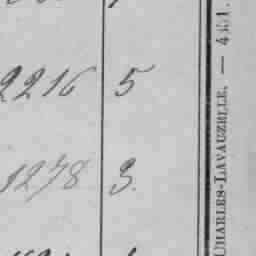 2216 5
1278 3.
CHARLES-LAVAUZELLE. — 4451.